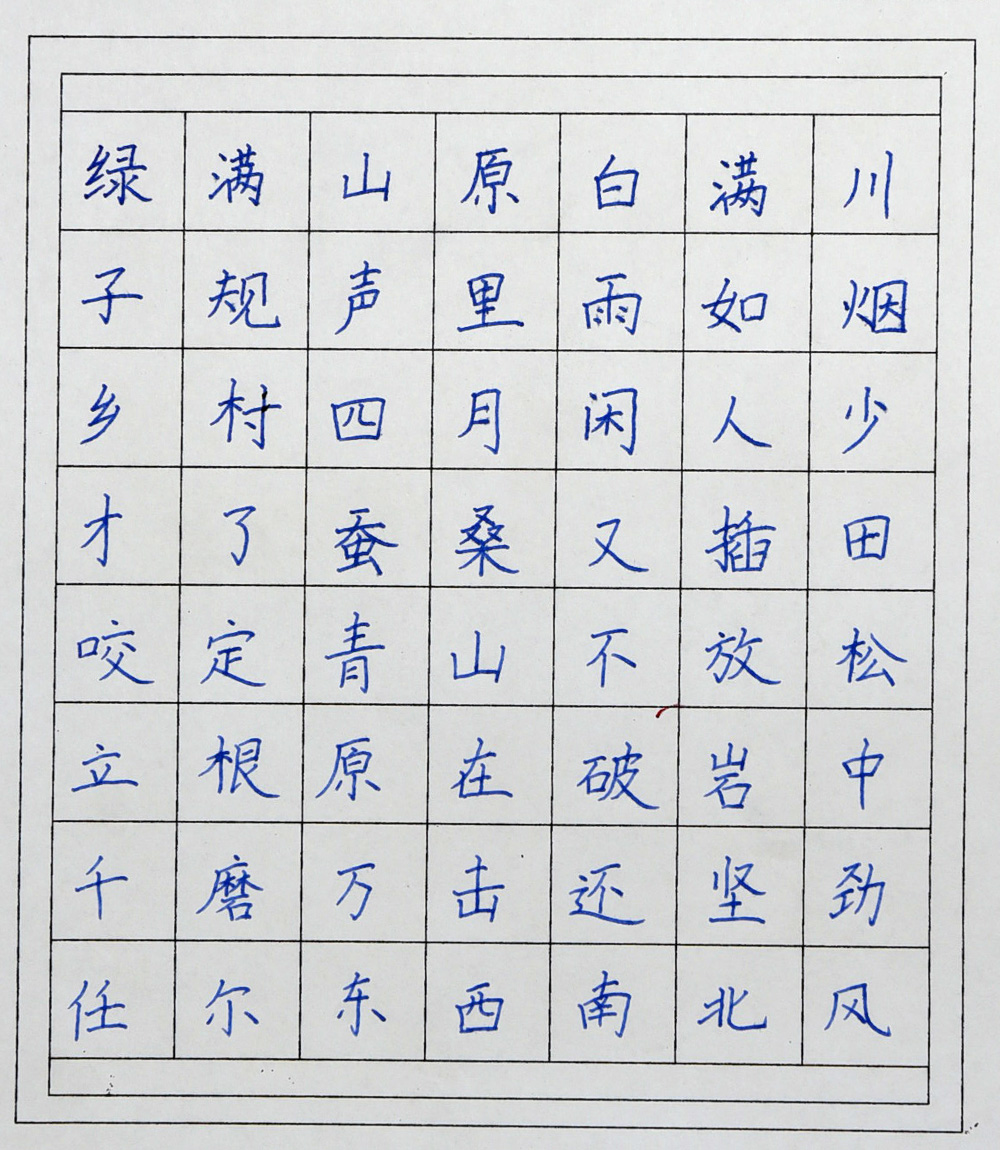 绿满山原白满川
子规声里雨如烟
乡村四月闲人少
才了蚕桑又插田
咬定青山不放松
立根原在破岩中
千磨万击还坚劲
任尔东西南北风